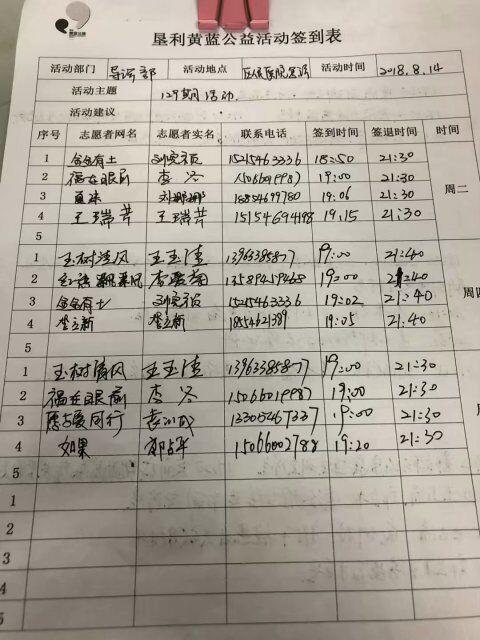 垦利黄蓝公益活动签到表
活动部门 导诊部 活动地点 活动时间 2018.8.14
活动主题 129期活动.
活动建议
序号 志愿者网名 志愿者实名 联系电话 签到时间 签退时间 时间
1 金金有土 15215463336 18:50 21:30
2 福在眼前 李 15066019987 19:00 21:30
3 18854699780 19:06 21:30 周二
4 王瑞芹 王瑞芹 15154694498 19.15 21:30
5
1 玉树清风 王玉清 13963385877 19:00 21:40
2 13589459468 19:00 21:40
3 金金有土 15215463336 19:02 21:40 周四
4 1854621389 19:05 21:40
5
1 玉树清风 王玉清 13963385877 19:00 21:30
2 福在眼前 李 15066019987 19:00 21:30
3 愿与爱同行 13305467337 19:00 21:30
4 如果 15066002788 19:20 21:30
5
1
2
3
4
5